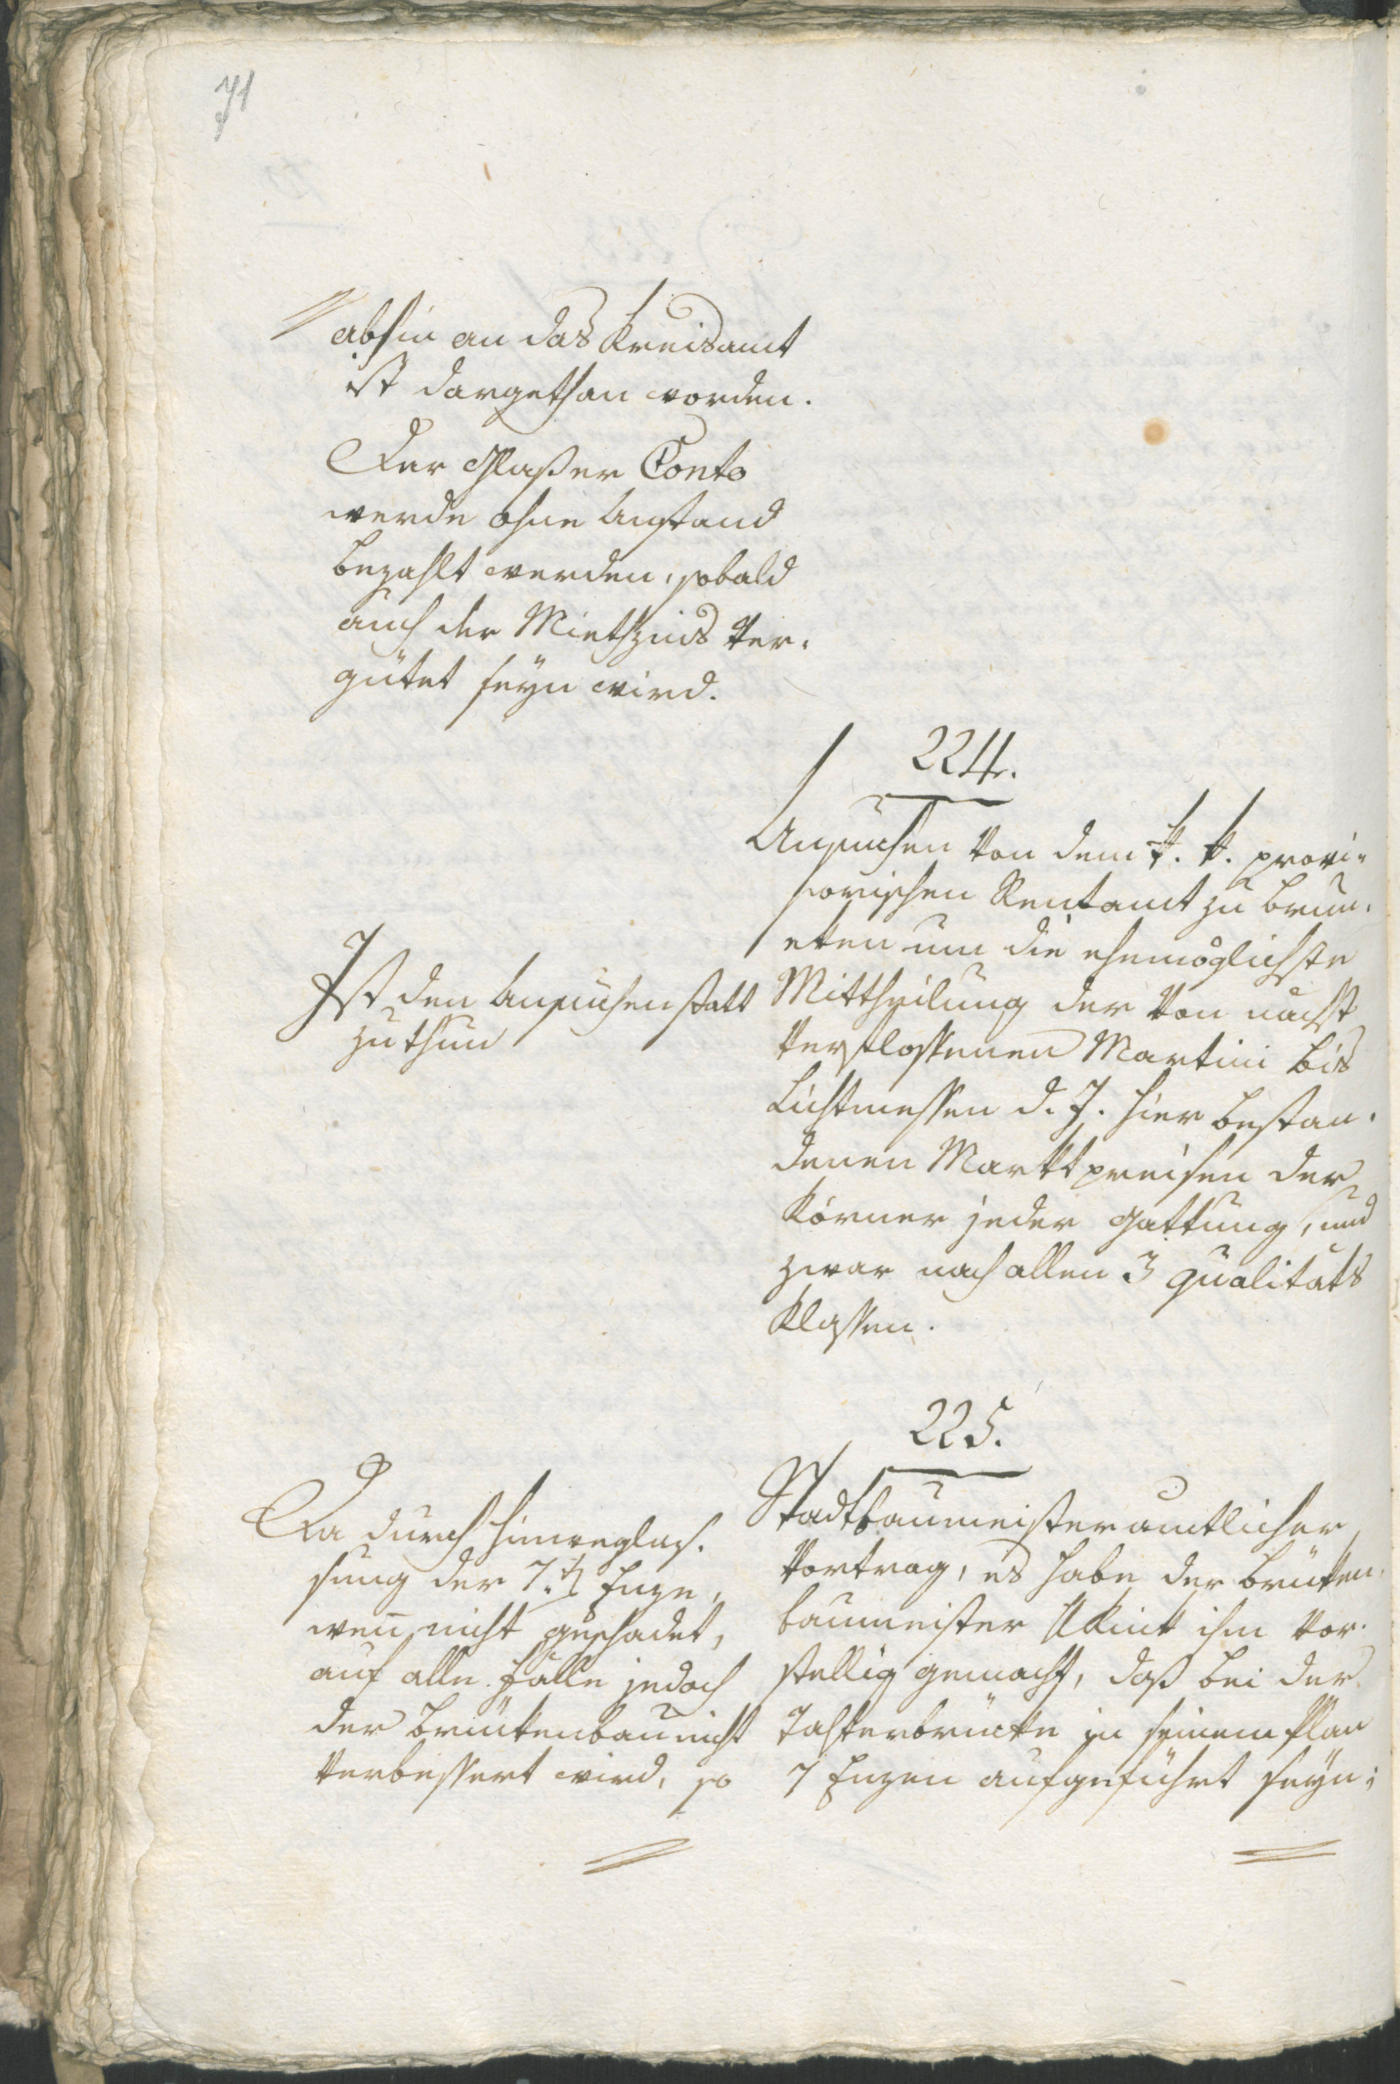 71
abhin an das Kreisamt
ist dargethan worden.
Der Glaßer Conto
werde ohne Anstand
bezahlt werden, sobald
auch der Miethzins ver-
gütet seyn wird.
224.
Ansuchen von dem k. k. provi-
sorischen Rentamt zu Brun-
eken um die ehemöglichste
Mittheilung der von nächst
verflossenen Martini bis
Lichtmessen d. J. hier bestan-
denen Marktpreisen der
Körner jeder Gattung, und
zwar nach allen 3 Qualitäts
Klassen.
Ist den Ansuchen statt
zu thun
225.
Stadtbaumeisteramtlicher
Vortrag, es habe der Brüken-
baumeister ihm vor-
stellig gemacht, daß bei der
Talferbrücke in seinem Plan
7 Enzen aufgeführt seyn;
Da durch Hinweglas-
sung der 7.t Enze,
wen̄ nicht geschadet,
auf alle Fälle jedoch
der Brükenbau nicht
verbessert wird, so